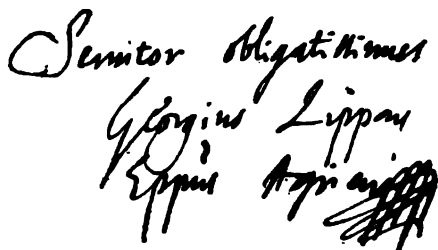 Servitor obligatissimus
Georgius Lippay
Eppus Agriensis